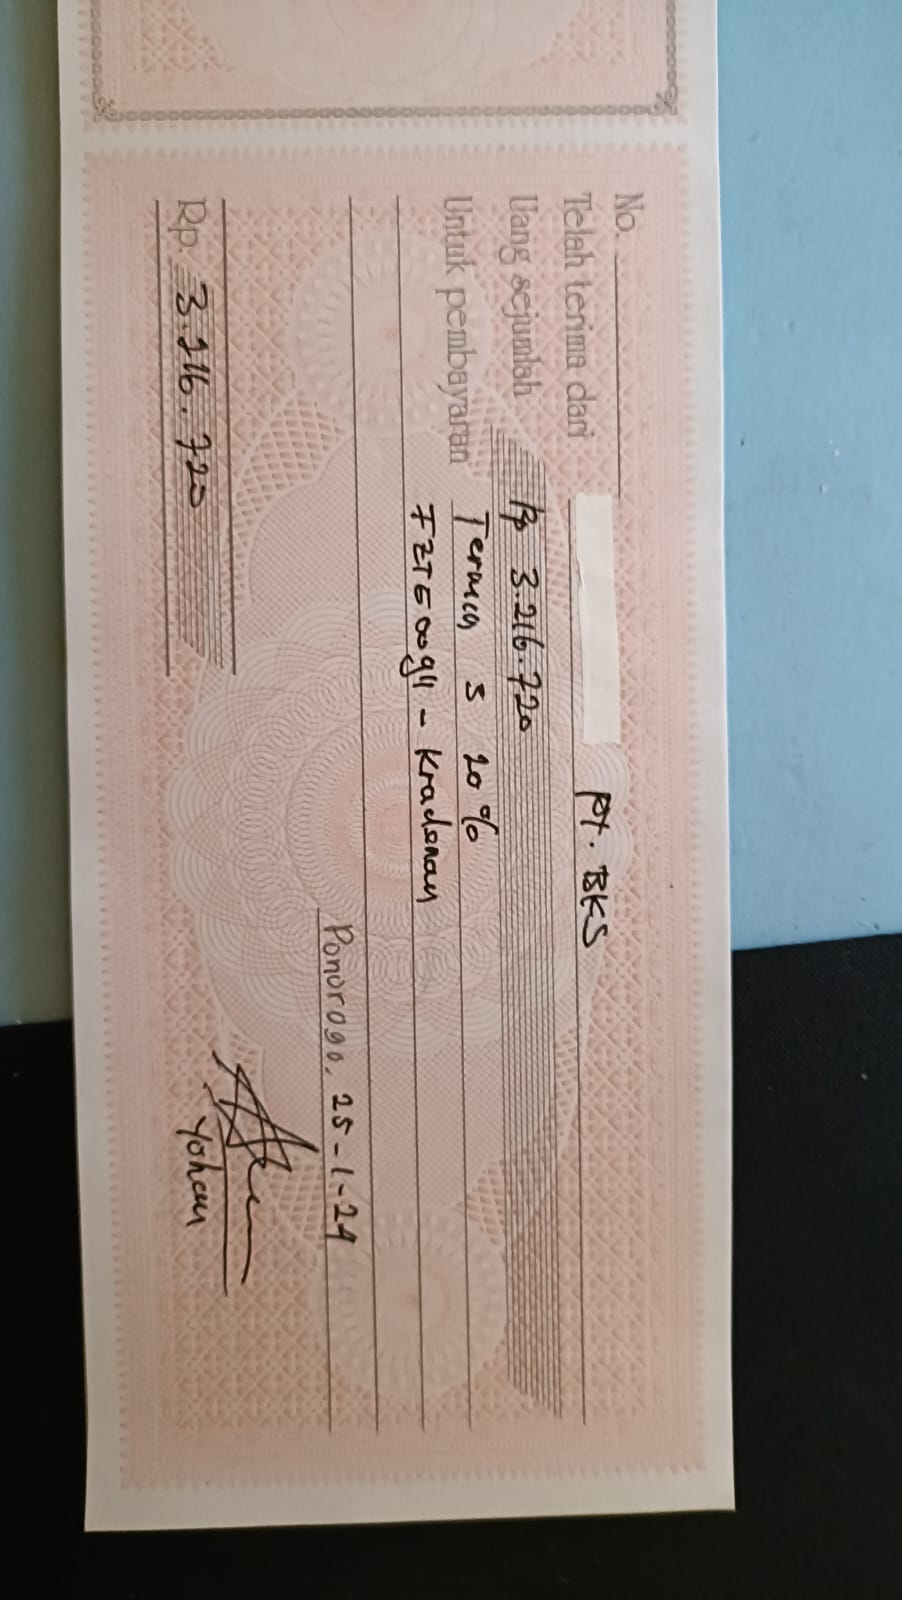 No.
Telah terima dari PT. BKS
Uang sejumlah Rp 3.216.720
Untuk pembayaran Termin 3 20%
FZTE00911 - Kradenan
Ponorogo, 25-1-24
Rp. 3.216.720
Yohan